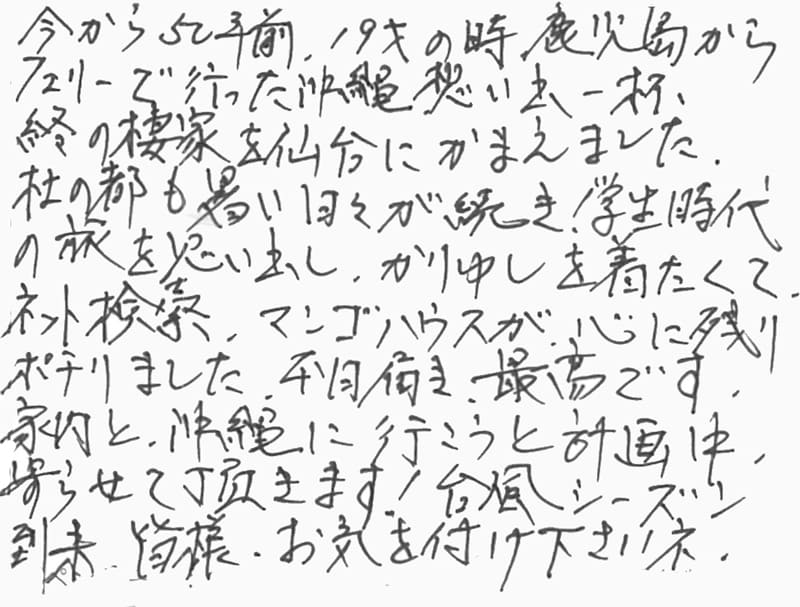 今から52年前、19才の時、鹿児島から
フェリーで行った沖縄 想い出一杯、
終の棲家を仙台にかまえました、
杜の都も暑い日々が続き、学生時代
の旅を思い出し、かりゆしを着たくて、
ネット検索、マンゴハウスが、心に残り
ポチりました、本日届き、最高です、
家内と、沖縄に行こうと計画中、
寄らせて頂きます！台風シーズン
到来 皆様、お気を付け下さいネ、